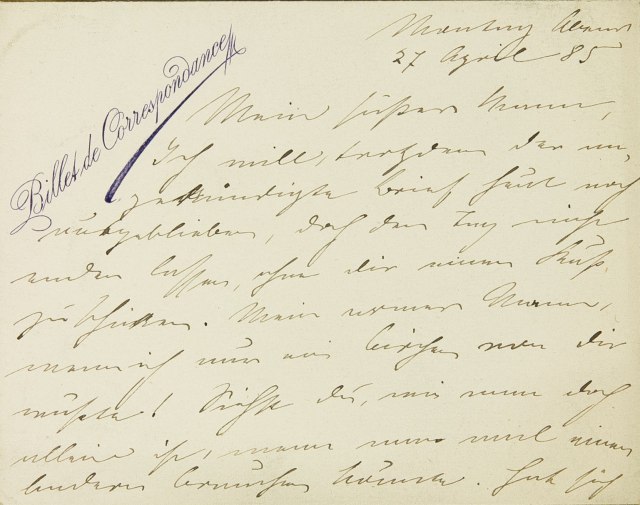 Billet de Correspondance
Montag Abend
27 April 85
Mein süßer Mann,
Ich will, trotzdem der an-
gekündigte Brief heut noch
ausgeblieben, doch den Tag nicht
enden lassen, ohne dir einen Kuß
zu schicken. Mein armer Mann,
wenn ich nur ein bischen von dir
wüßte! Siehst du, wie man doch
allein ist, wenn man mal einen
andern brauchen könnte. Hat sich